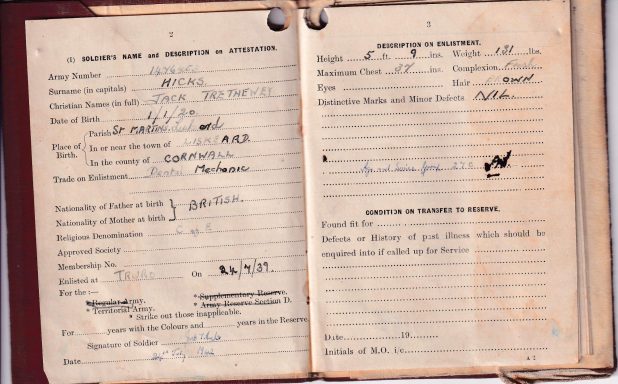 2
(I) SOLDIER'S NAME and DESCRIPTION on ATTESTATION.
Army Number
Surname (in capitals) HICKS
Christian Names (in full) JACK TRETHEWEY
Date of Birth 1/1/20
Place of Birth.
Parish St MARTINS and
In or near the town of LISKEARD.
In the county of CORNWALL
Trade on Enlistment Dental Mechanic
Nationality of Father at birth
Nationality of Mother at birth
BRITISH.
Religious Denomination C of E
Approved Society
Membership No.
Enlisted at TRURO On 24/7/39.
For the :—
* Regular Army. * Supplementary Reserve.
* Territorial Army. * Army Reserve Section D.
* Strike out those inapplicable.
For years with the Colours and years in the Reserve
Signature of Soldier
Date
3
DESCRIPTION ON ENLISTMENT.
Height 5 ft 9 ins. Weight 131 lbs.
Maximum Chest 37 ins. Complexion Fresh
Eyes Hair BROWN
Distinctive Marks and Minor Defects NIL.
Age and Service Group 27
CONDITION ON TRANSFER TO RESERVE.
Found fit for
Defects or History of past illness which should be
enquired into if called up for Service
Date 19
Initials of M.O. i/c
A 2